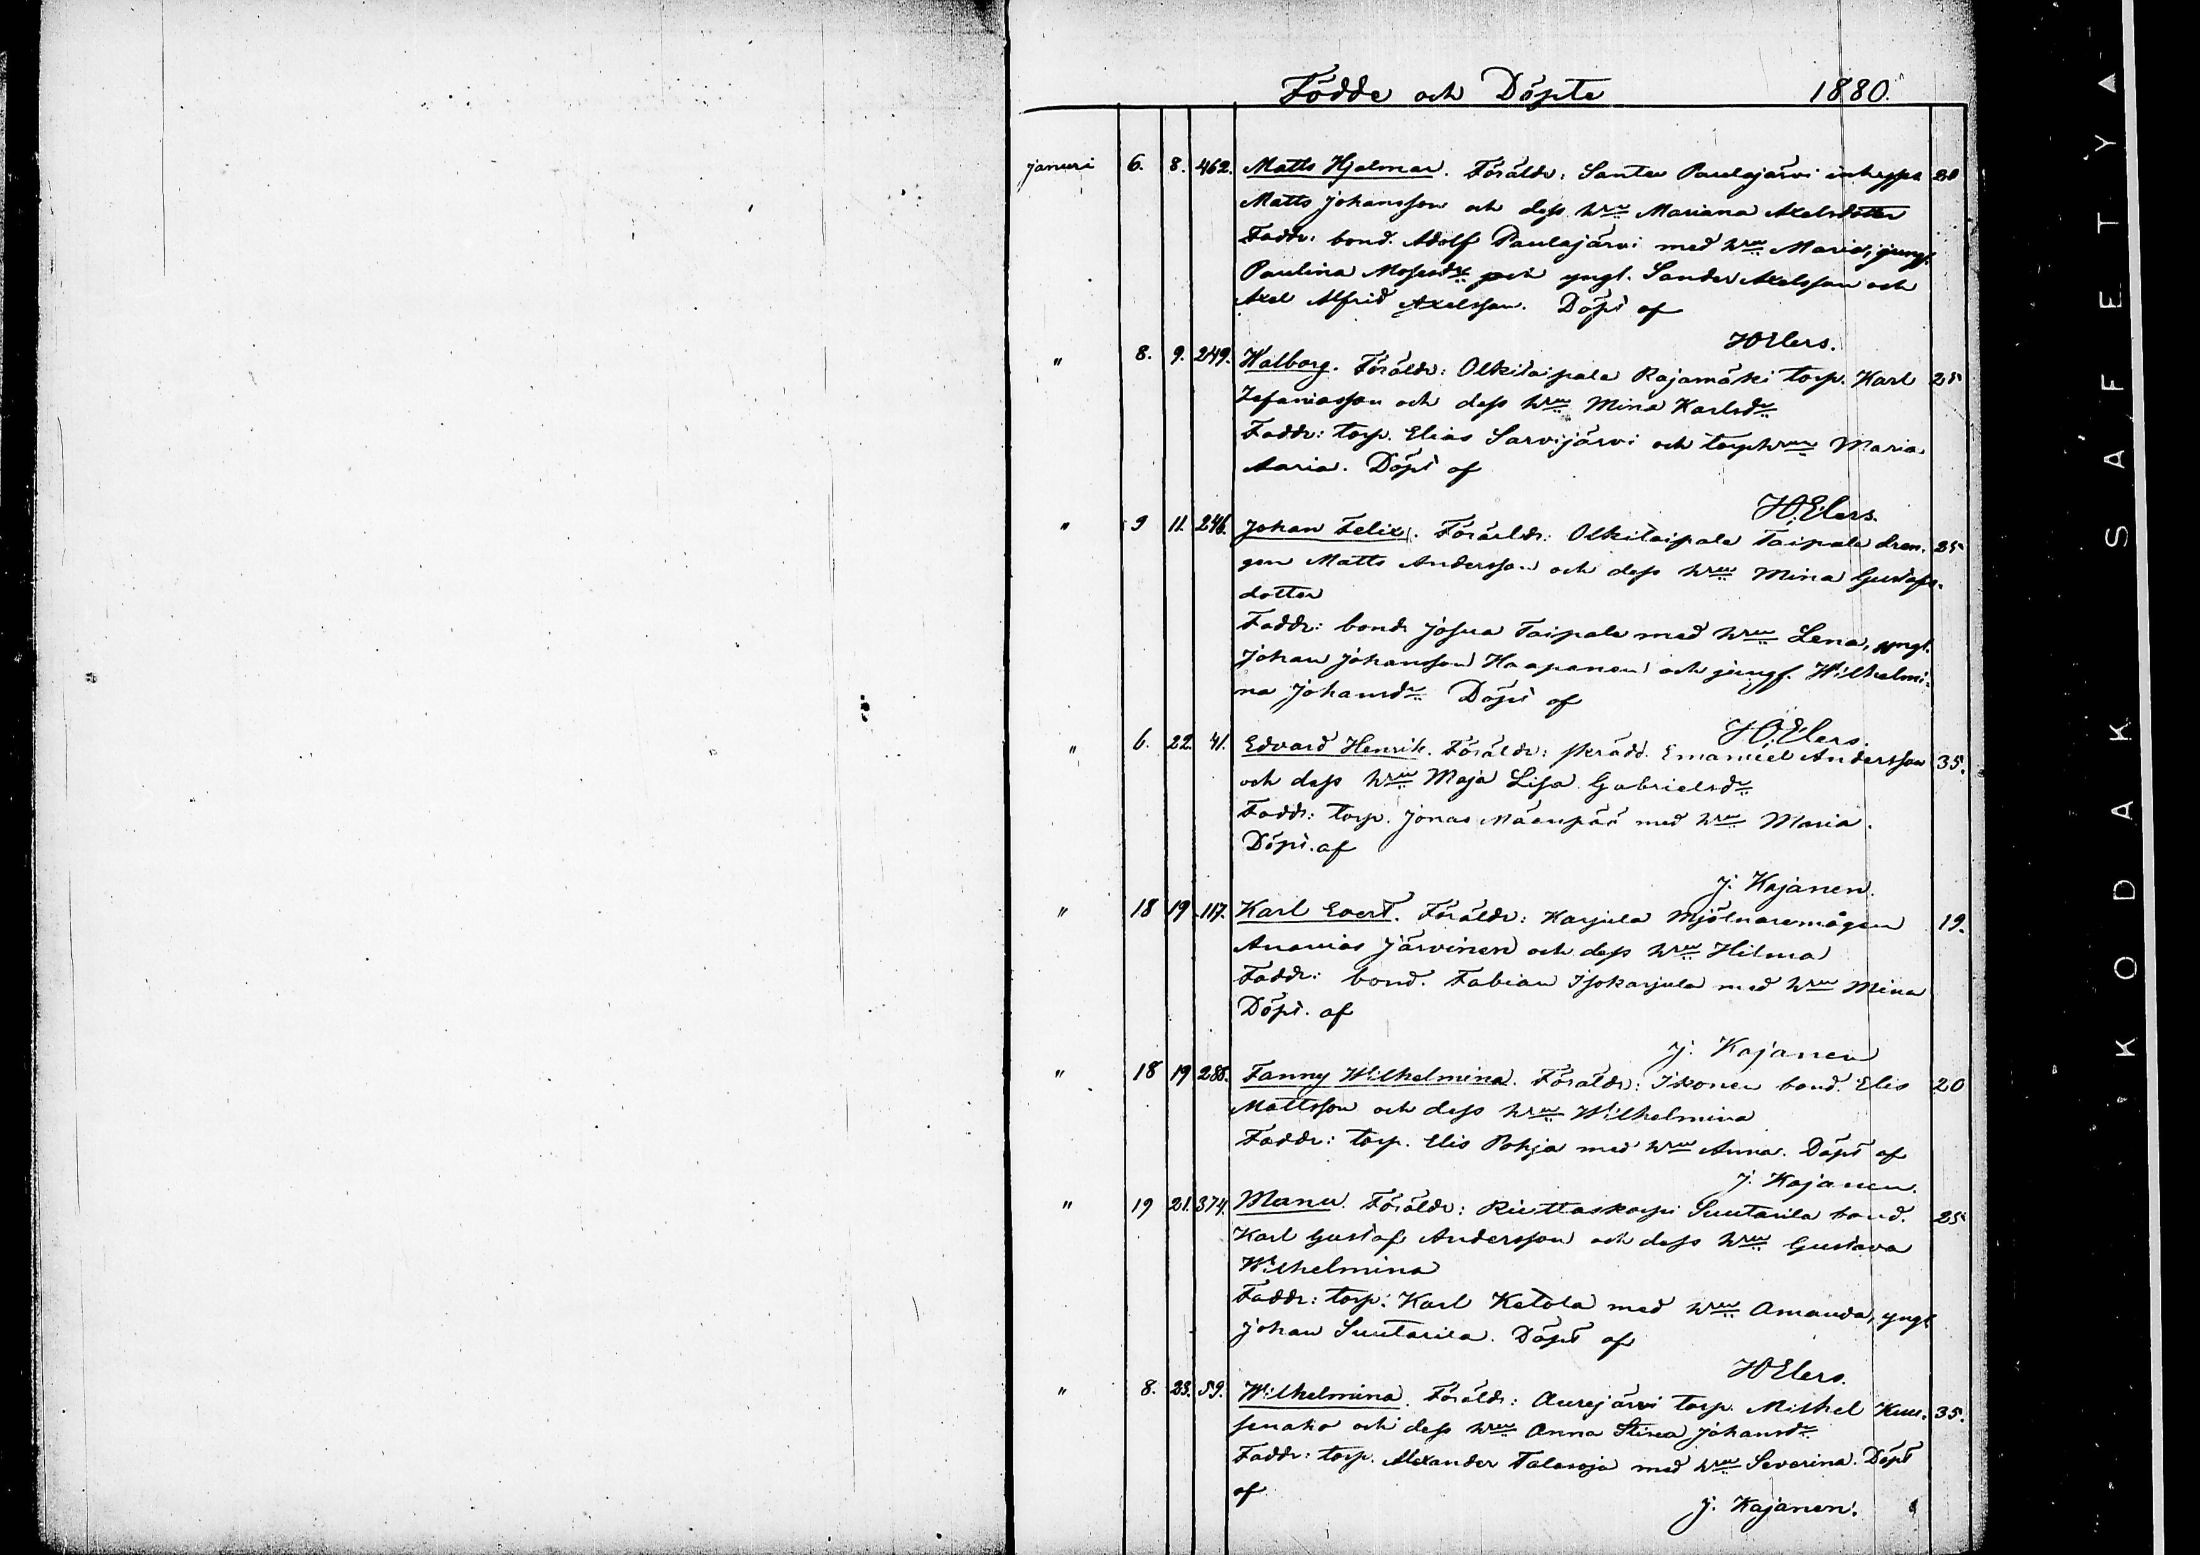 Födde och Döpte 1880.
januari 6. 8. 462. Matts Hjelmar. Föräldr: Santeu Paulajärvi inhyses 20
Matts Johansson och dess hru Mariana Axelsdotter
Faddr: bond. Adolf Paulajärvi med hru Maria, jungf.
Paulina Mosesdr och yngl. Sander Axelsson och
Axel Alfrid Axelsson. Döpt af
HOElers.
" 8. 9. 249. Walborg. Föräldr: Olkitaipale Rajamäki torp. Karl 25
Zefaniasson och dess hru Mina Karlsdr
Faddr: torp. Elias Sarvijärvi och torphru Maria
Aaria. Döpt af
HOElers.
" 9 11. 246. Johan Felix. Föräldr: Olkitaipale Taipale drän- 25
gen Matts Andersson och dess hru Mina Gustafs-
dotter
Faddr: bond. Josua Taipale med hru Lena, yngl.
Johan Johansson Haapanen och jungf. Wilhelmi-
na Johansdr Döpt af
HOElers.
" 6. 22. 41. Edvard Henrik. Föräldr: skrädd. Emanuel Andersson 35.
och dess hru Maja Lisa Gabrielsdr
Faddr: torp. Jonas Mäenpää med hru Maria.
Döpt. af
J. Kajanen.
" 18 19 117. Karl Evert. Föräldr: Karjula Mjölnaremågen 19.
Ananias Järvinen och dess hru Hilma
Faddr: bond. Fabian Isokarjula med hru Mina
Döpt. af
J. Kajanen
" 18 19 288. Fanny Wilhelmina. Föräldr: Ikonen bond. Elis 20
Mattsson och dess hru Wilhelmina
Faddr: torp. Elis Pohja med hru Anna. Döpt af
J. Kajanen.
" 19 21. 374. Manu. Föräldr: Riuttaskorpi Suutarila bond. 25
Karl Gustaf Andersson och dess hru Gustava
Wilhelmina
Faddr: torp. Karl Ketola med hru Amanda, yngl.
Johan Suutarila. Döpt af
HOElers.
" 8. 23. 59. Wilhelmina. Föräldr: Aurejärvi torp. Mikhel Kuu- 35.
senaho och dess hru Anna Stina Johansdr
Faddr: torp. Alexander Talasoja med hru Severina. Döpt
af
J. Kajanen.
KODAK SAFETY